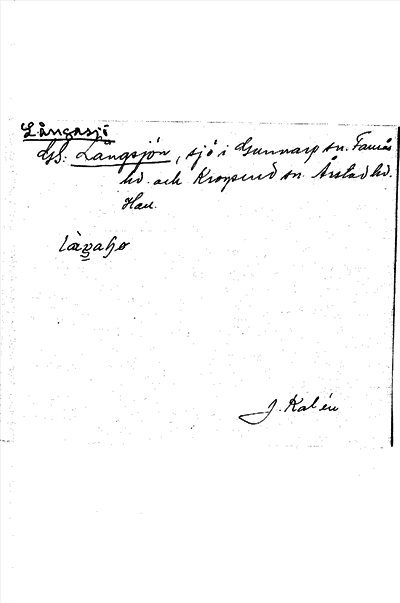 Långasjö
GS: Långsjön, sjö i Gunnarp sn. Faurås
hd. och Krogsered sn. Årstad hd.
Hall.
làŋaɧø
J. Kalén